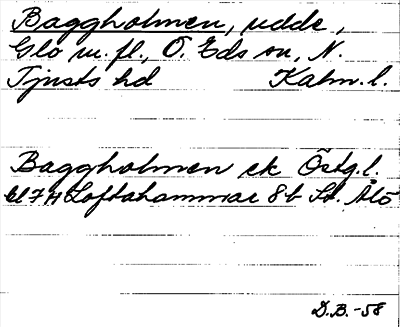 Baggholmen, udde,
Glo m. fl., Ö. Eds sn, N.
Tjusts hd Kalm. l.
Baggholmen ek Östg. l.
bl 7H Loftahammar 8b Sd. Älö
D.B. -58